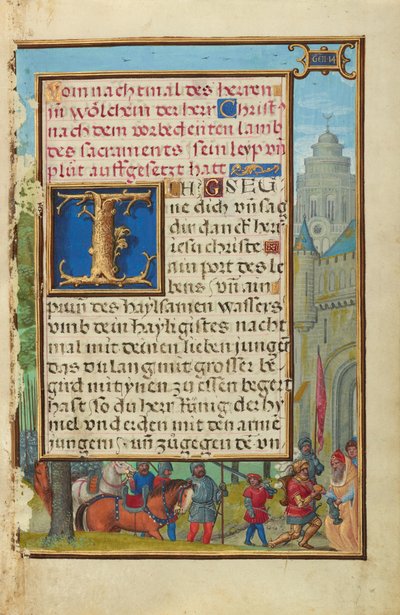 GEN · 14
Vom nachtmal des herren
in wölchem der herr Christ9
nach dem vorbedeüten lamb
des sacraments sein leyp vn̄
plūt auffgesetzt hatt
ICH GSEG
ne dich vn̄ sag
dir danck herr
iesu christe
ain port des le
bens vn̄ ain
prun̄ des haylsamen wassers
vmb dein hayligistes nacht
mal mit deinen lieben junger̄
das du lang mit grosser be
gird mit ynen zu essen begert
hast so du herr künig der hy
mel vn̄ erden mit den arme
jungern vn̄ zugegen de vn